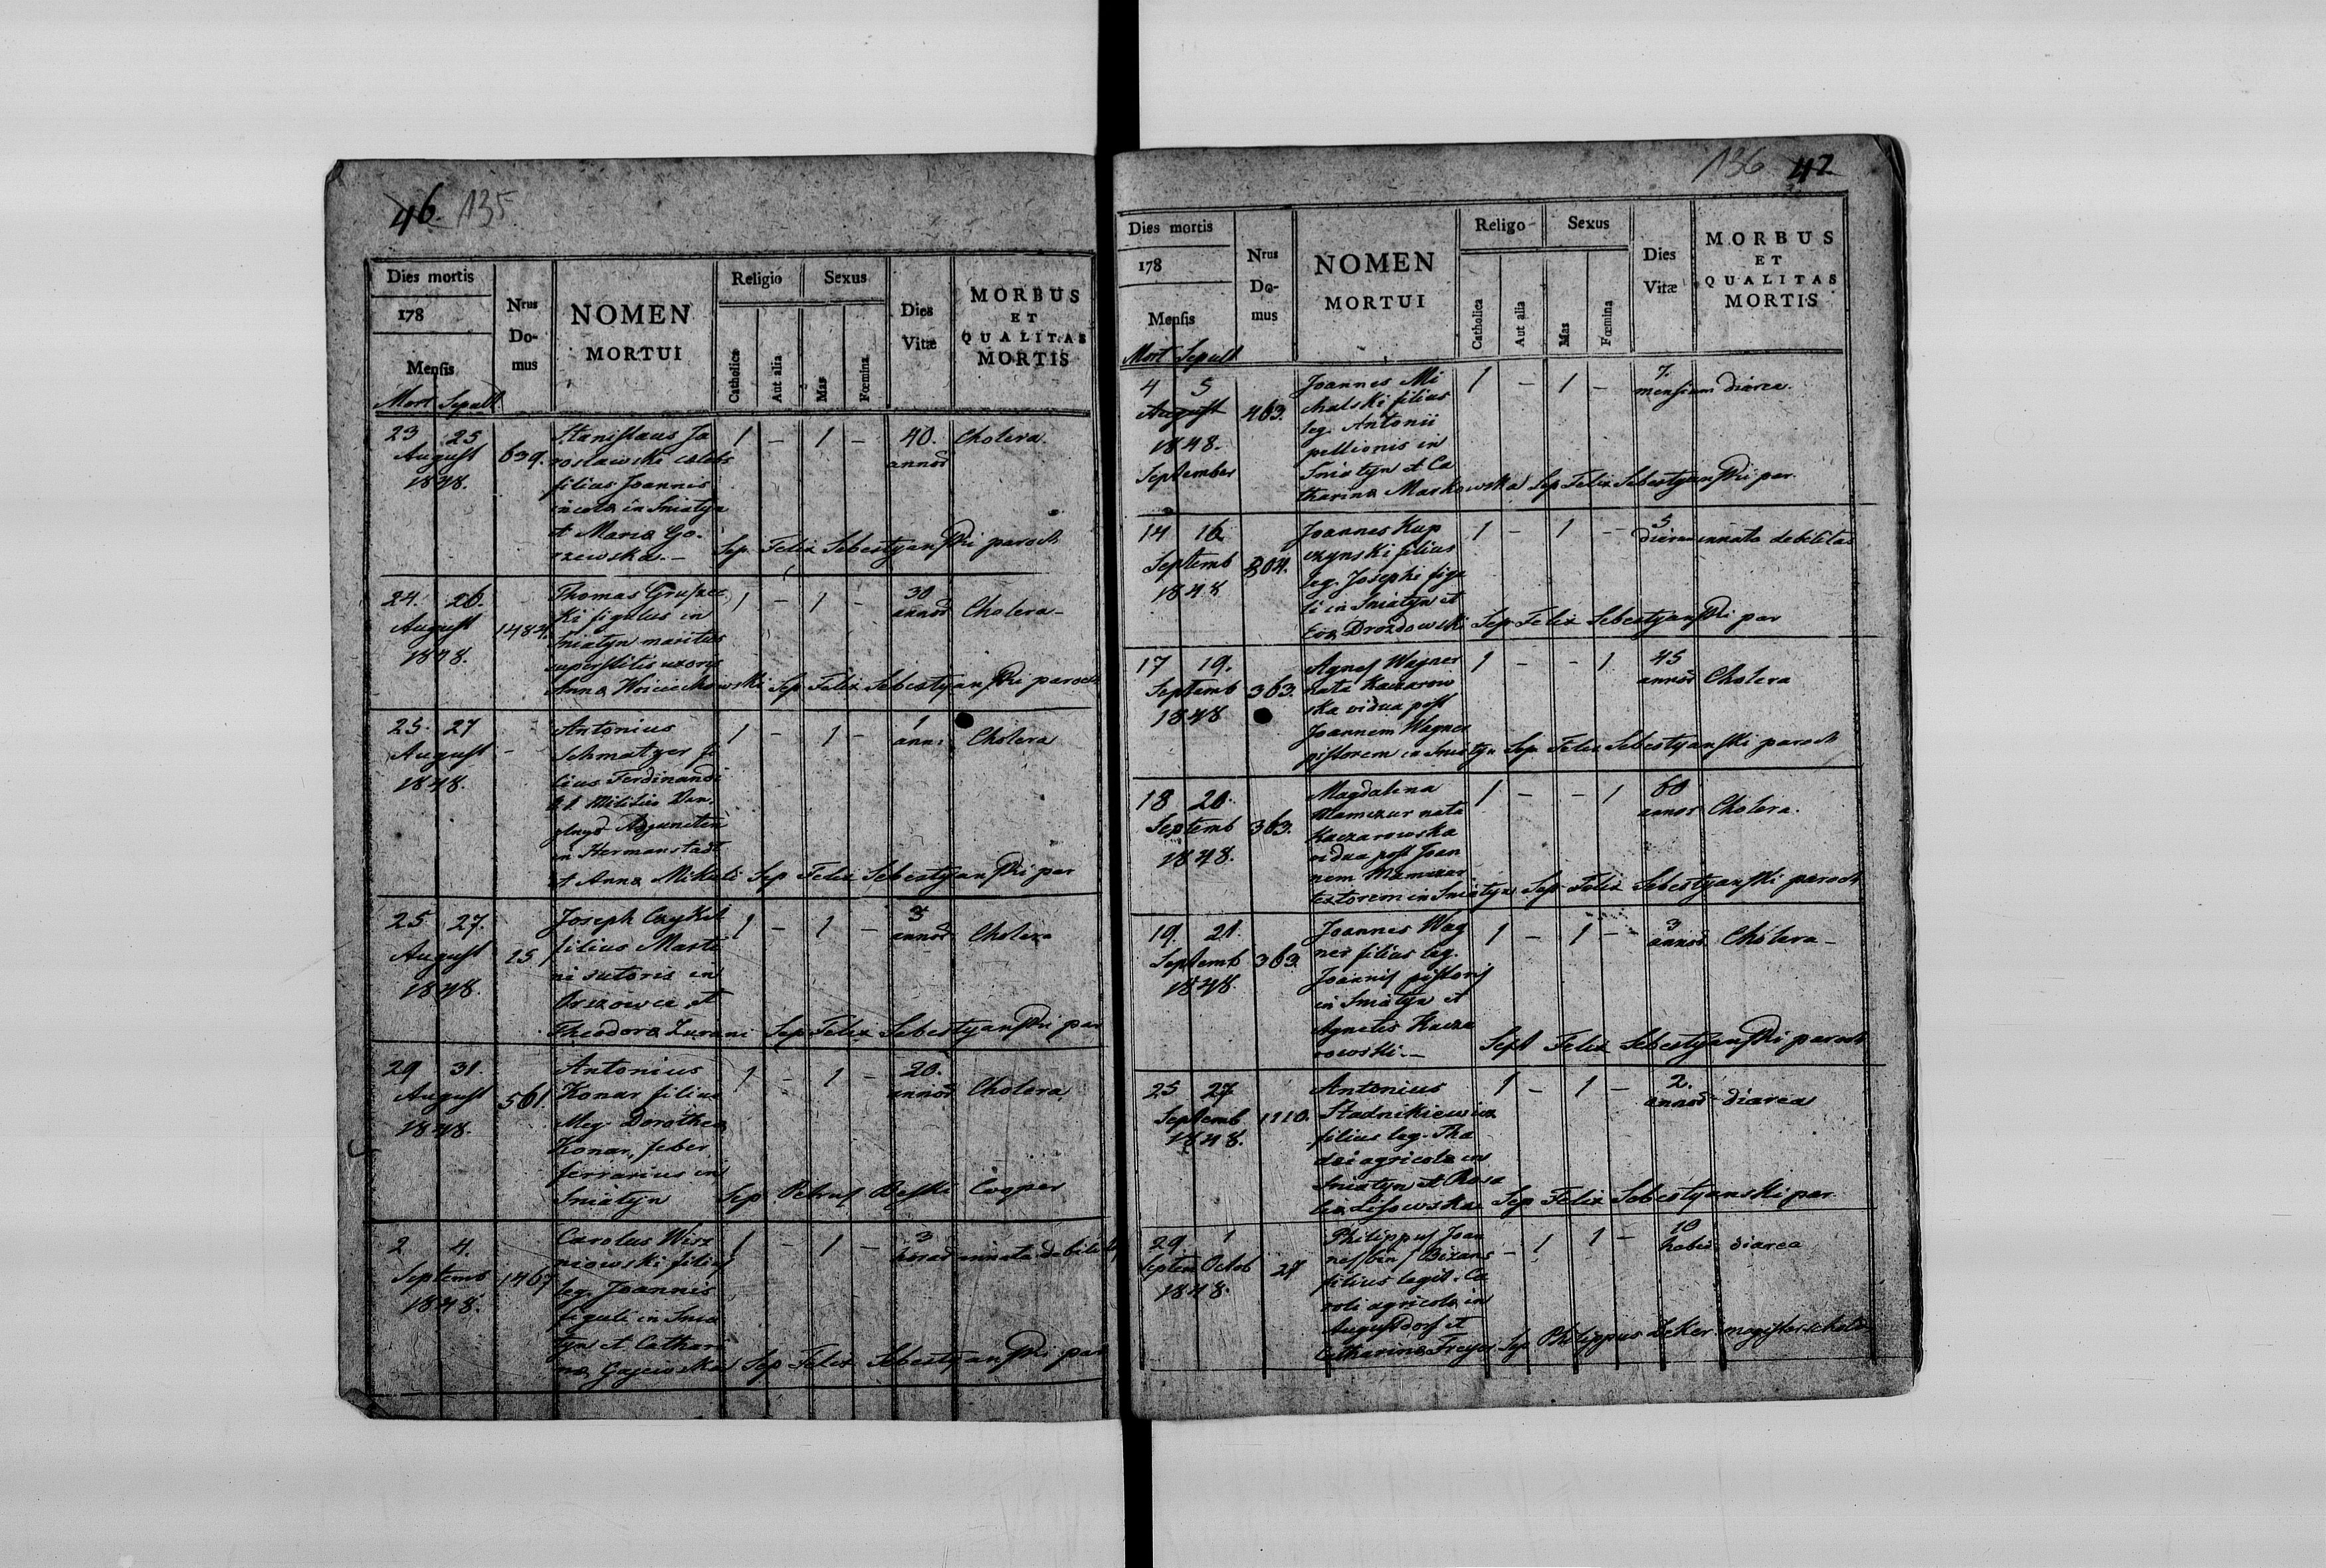 46. 135
Dies mortis
178
Menſis
Mort Sepult
Nrus
Do-
mus
NOMEN
MORTUI
Religio
Catholica
Aut alia
Sexus
Mas
Fœmina
Dies
Vitæ
MORBUS
ET
QUALITAS
MORTIS
23 25
August
1848.
639.
Stanislaus Ja
roslawski celebs
filius Joannis
incola in Sniatyn
et Maria Go-
rzewska.—
1 – 1 –
40.
annor
Cholera
Sep. Felix Sebestyanski paroch
24. 26.
August
1848.
1484.
Thomas Gruszec
ki figulus in
Sniatyn maritus
superstitis uxoris
Anna Woiciechowski Sep Felix Sebestyanski paroch
1 – 1 –
30
annor
Cholera –
25. 27
August –
1848.
Antonius
Schmatzer fi
lius Ferdinandi
Militiæ
in Hermanstadt
et Anna Mikuli Sep Felix Sebestyanski par
1 – 1 –
1
ann:
Cholera
25 27.
August
1848.
25
Joseph Czykil
filius Marti
ni sutoris in
et
Theodora Zurani Sep Felix Sebestyanski par
1 – 1 –
3
annor
Cholera
29 31.
August
1848.
561.
Antonius
Konar filius
Dorothea
Konar, faber
ferrarius in
Sniatyn
1 – 1 –
20.
annor
Cholera
Sep Petrus Cooper
2 4.
Septemb
1848.
1467
Carolus Wisz
niowski filius
leg. Joannis
figuli in Snia
tyn et Cathari
na Sep Felix Sebestyanski par
1 – 1 –
3
horar innata debilit
136 47
Dies mortis
178
Menſis
Mort Sepult
Nrus
Do-
mus
NOMEN
MORTUI
Religo
Catholica
Aut alia
Sexus
Mas
Fœmina
Dies
Vitæ
MORBUS
ET
QUALITAS
MORTIS
4 5
August
1848.
September
463.
Joannes Mi
chalski filius
leg. Antonii
pellionis in
Sniatyn et Ca
tharina Maskowska Sep Felix Sebestyanski par.
1 – 1 –
7.
mensium diarea.
14 16
Septemb
1848
804.
Joannes Kup
czynski filius
leg. Josephi figu
li in Sniatyn et
Eva Drozdowski Sep Felix Sebestyanski par
1 – 1 –
5
dierum innata debilitas
17 19.
Septemb
1848
363.
Agnes Wagner
nata Kaczarow
ska vidua post
Joannem Wagner
pistorem in Sniatyn Sep Felix Sebestyanski paroch
1 – – 1
45
annor Cholera
18 20.
Septemb
1848.
363.
Magdalena
Mamczur nata
Kaczarowska
vidua post Joan
nem Mamczur
textorem in Sniatyn Sep Felix Sebestyanski paroch
1 – – 1
60
annor Cholera.
19. 21.
Septemb
1848.
363.
Joannes Wag
ner filius leg.
Joannis pistoris
in Sniatyn et
Agnetis Kacza
rowski.—
1 – 1 –
3
annor Cholera –
Sept Felix Sebestyanski paroch
25 27
Septemb
1848.
1110.
Antonius
Stadnikiewicz
filius leg. Tha
dei agricola in
Sniatyn et Rosa
lia Lisowska Sep Felix Sebestyanski par.
1 – 1 –
2.
annor diarea
29 1
Septem Octob
1848.
27
Philippus Joan
nes bin Bizans
filius legit. Ca
roli agricola in
Augustdorf et
Catharina Freyer Sep Philippus Deker magister schola
– 1 1 –
10
diarea